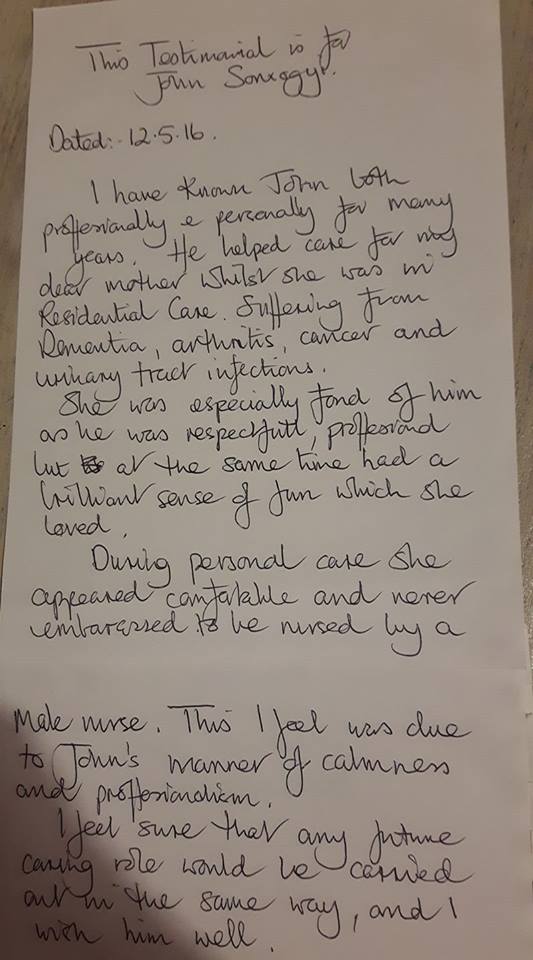 This Testimonial is for
John
Dated:- 12.5.16.
I have known John both
proffesionally & personally for many
years. He helped care for my
dear mother whilst she was in
Residential Care. Suffering from
Dementia, arthritis, cancer and
urinary tract infections.
She was especially fond of him
as he was respectfull, proffesional
but at the same time had a
brilliant sense of fun which she
loved.
During personal care she
appeared comfortable and never
embarassed to be nursed by a
Male nurse. This I feel was due
to John's manner of calmness
and proffesionalism.
I feel sure that any future
caring role would be carried
out in the same way, and I
wish him well.